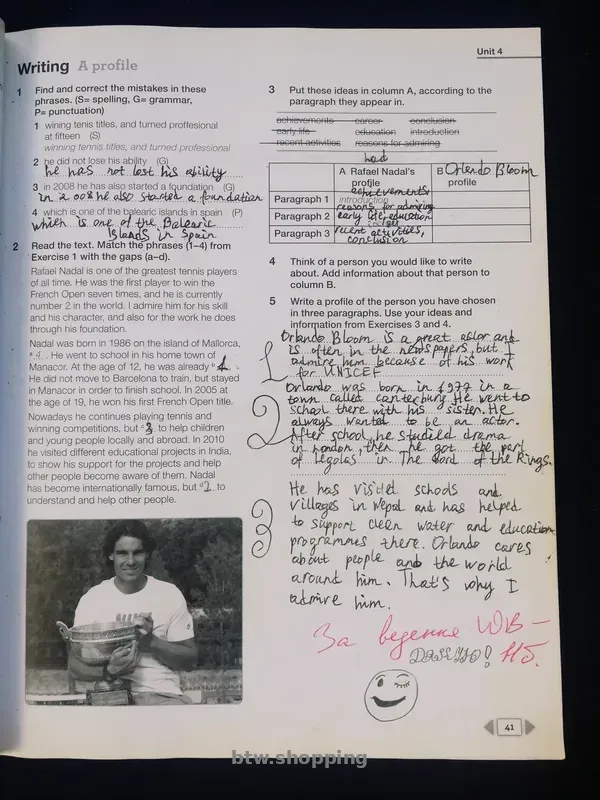 Unit 4
Writing A profile
1 Find and correct the mistakes in these
phrases. (S= spelling, G= grammar,
P= punctuation)
1 wining tenis titles, and turned proffesional
at fifteen (S)
winning tennis titles, and turned professional
2 he did not lose his ability (G)
he has not lost his ability
3 in 2008 he has also started a foundation (G)
in 2008 he also started a foundation
4 which is one of the balearic islands in spain (P)
which is one of the Balearic
Islands in Spain
2 Read the text. Match the phrases (1–4) from
Exercise 1 with the gaps (a–d).
Rafael Nadal is one of the greatest tennis players
of all time. He was the first player to win the
French Open seven times, and he is currently
number 2 in the world. I admire him for his skill
and his character, and also for the work he does
through his foundation.
Nadal was born in 1986 on the island of Mallorca,
a 4. He went to school in his home town of
Manacor. At the age of 12, he was already b 1.
He did not move to Barcelona to train, but stayed
in Manacor in order to finish school. In 2005 at
the age of 19, he won his first French Open title.
Nowadays he continues playing tennis and
winning competitions, but c 3. to help children
and young people locally and abroad. In 2010
he visited different educational projects in India,
to show his support for the projects and help
other people become aware of them. Nadal
has become internationally famous, but d 2. to
understand and help other people.
3 Put these ideas in column A, according to the
paragraph they appear in.
achievements career conclusion
early life education introduction
recent activities reasons for admiring
had
A Rafael Nadal's
profile
B Orlando Bloom
profile
achievements
Paragraph 1 introduction
reasons for admiring
Paragraph 2 early life, education
Paragraph 3 recent activities,
conclusion
4 Think of a person you would like to write
about. Add information about that person to
column B.
5 Write a profile of the person you have chosen
in three paragraphs. Use your ideas and
information from Exercises 3 and 4.
1 Orlando Bloom is a great actor and
is often in the newspapers, but I
admire him because of his work
for UNICEF
2 Orlando was born in 1977 in a
town called canterburg. He went to
school there with his sister. He
always wanted to be an actor.
After school, he studied drama
in London, then he got the part
of Legolas in The Lord of the Rings.
3 He has visited schools and
villages in Nepal and has helped
to support clean water and education
programmes there. Orlando cares
about people and the world
around him. That's why I
admire him.
За ведення WB –
ДЯКУЮ! Нб.
41
btw.shopping